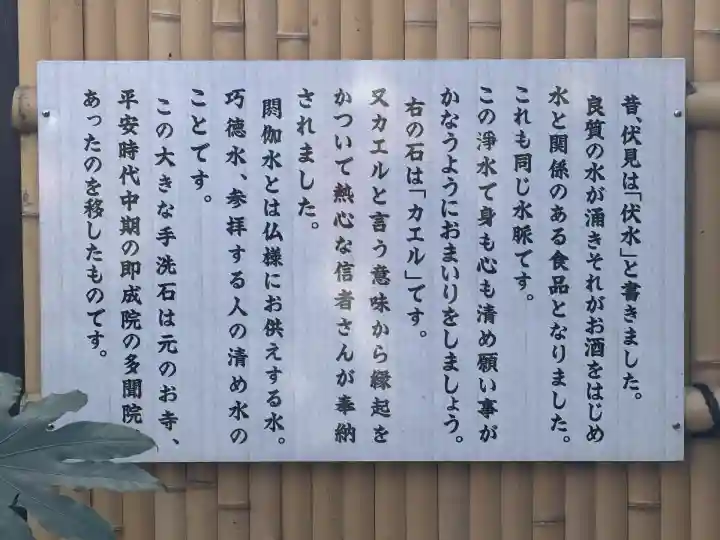 昔、伏見は「伏水」と書きました。
良質の水が涌きそれがお酒をはじめ
水と関係のある食品となりました。
これも同じ水脈です。
この浄水で身も心も清め願い事が
かなうようにおまいりをしましょう。
右の石は「カエル」です。
又カエルと言う意味から縁起を
かついで熱心な信者さんが奉納
されました。
閼伽水とは仏様にお供えする水。
巧徳水、参拝する人の清め水の
ことです。
この大きな手洗石は元のお寺、
平安時代中期の即成院の多聞院に
あったのを移したものです。